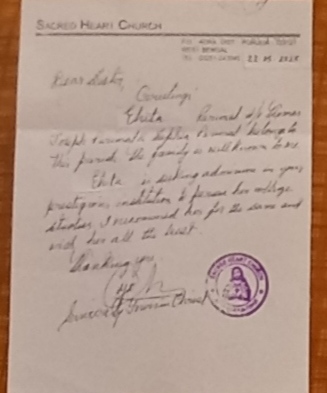 SACRED HEART CHURCH
WEST BENGAL
Dear Sister,
Greetings!
Ekita Perumal d/o Thomas
Joseph Perumal & Perumal belongs to
this parish. The family is well known to me.
Ekita is seeking admission in your
prestigious institution to pursue her college
studies. I recommend her for the same and
wish her all the best.
Thanking you
Sincerely Yours in Christ
SACRED HEART CHURCH